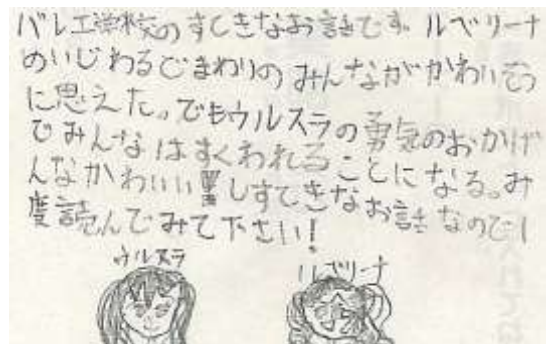 バレエ学校のすてきなお話です。ルベリーナ
のいじわるでまわりのみんながかわいそう
に思えた。でもウルスラの勇気のおかげ
でみんなはすくわれることになる。み
んなかわいいしすてきなお話なので1
度読んでみて下さい!
ウルスラ ルベリーナ